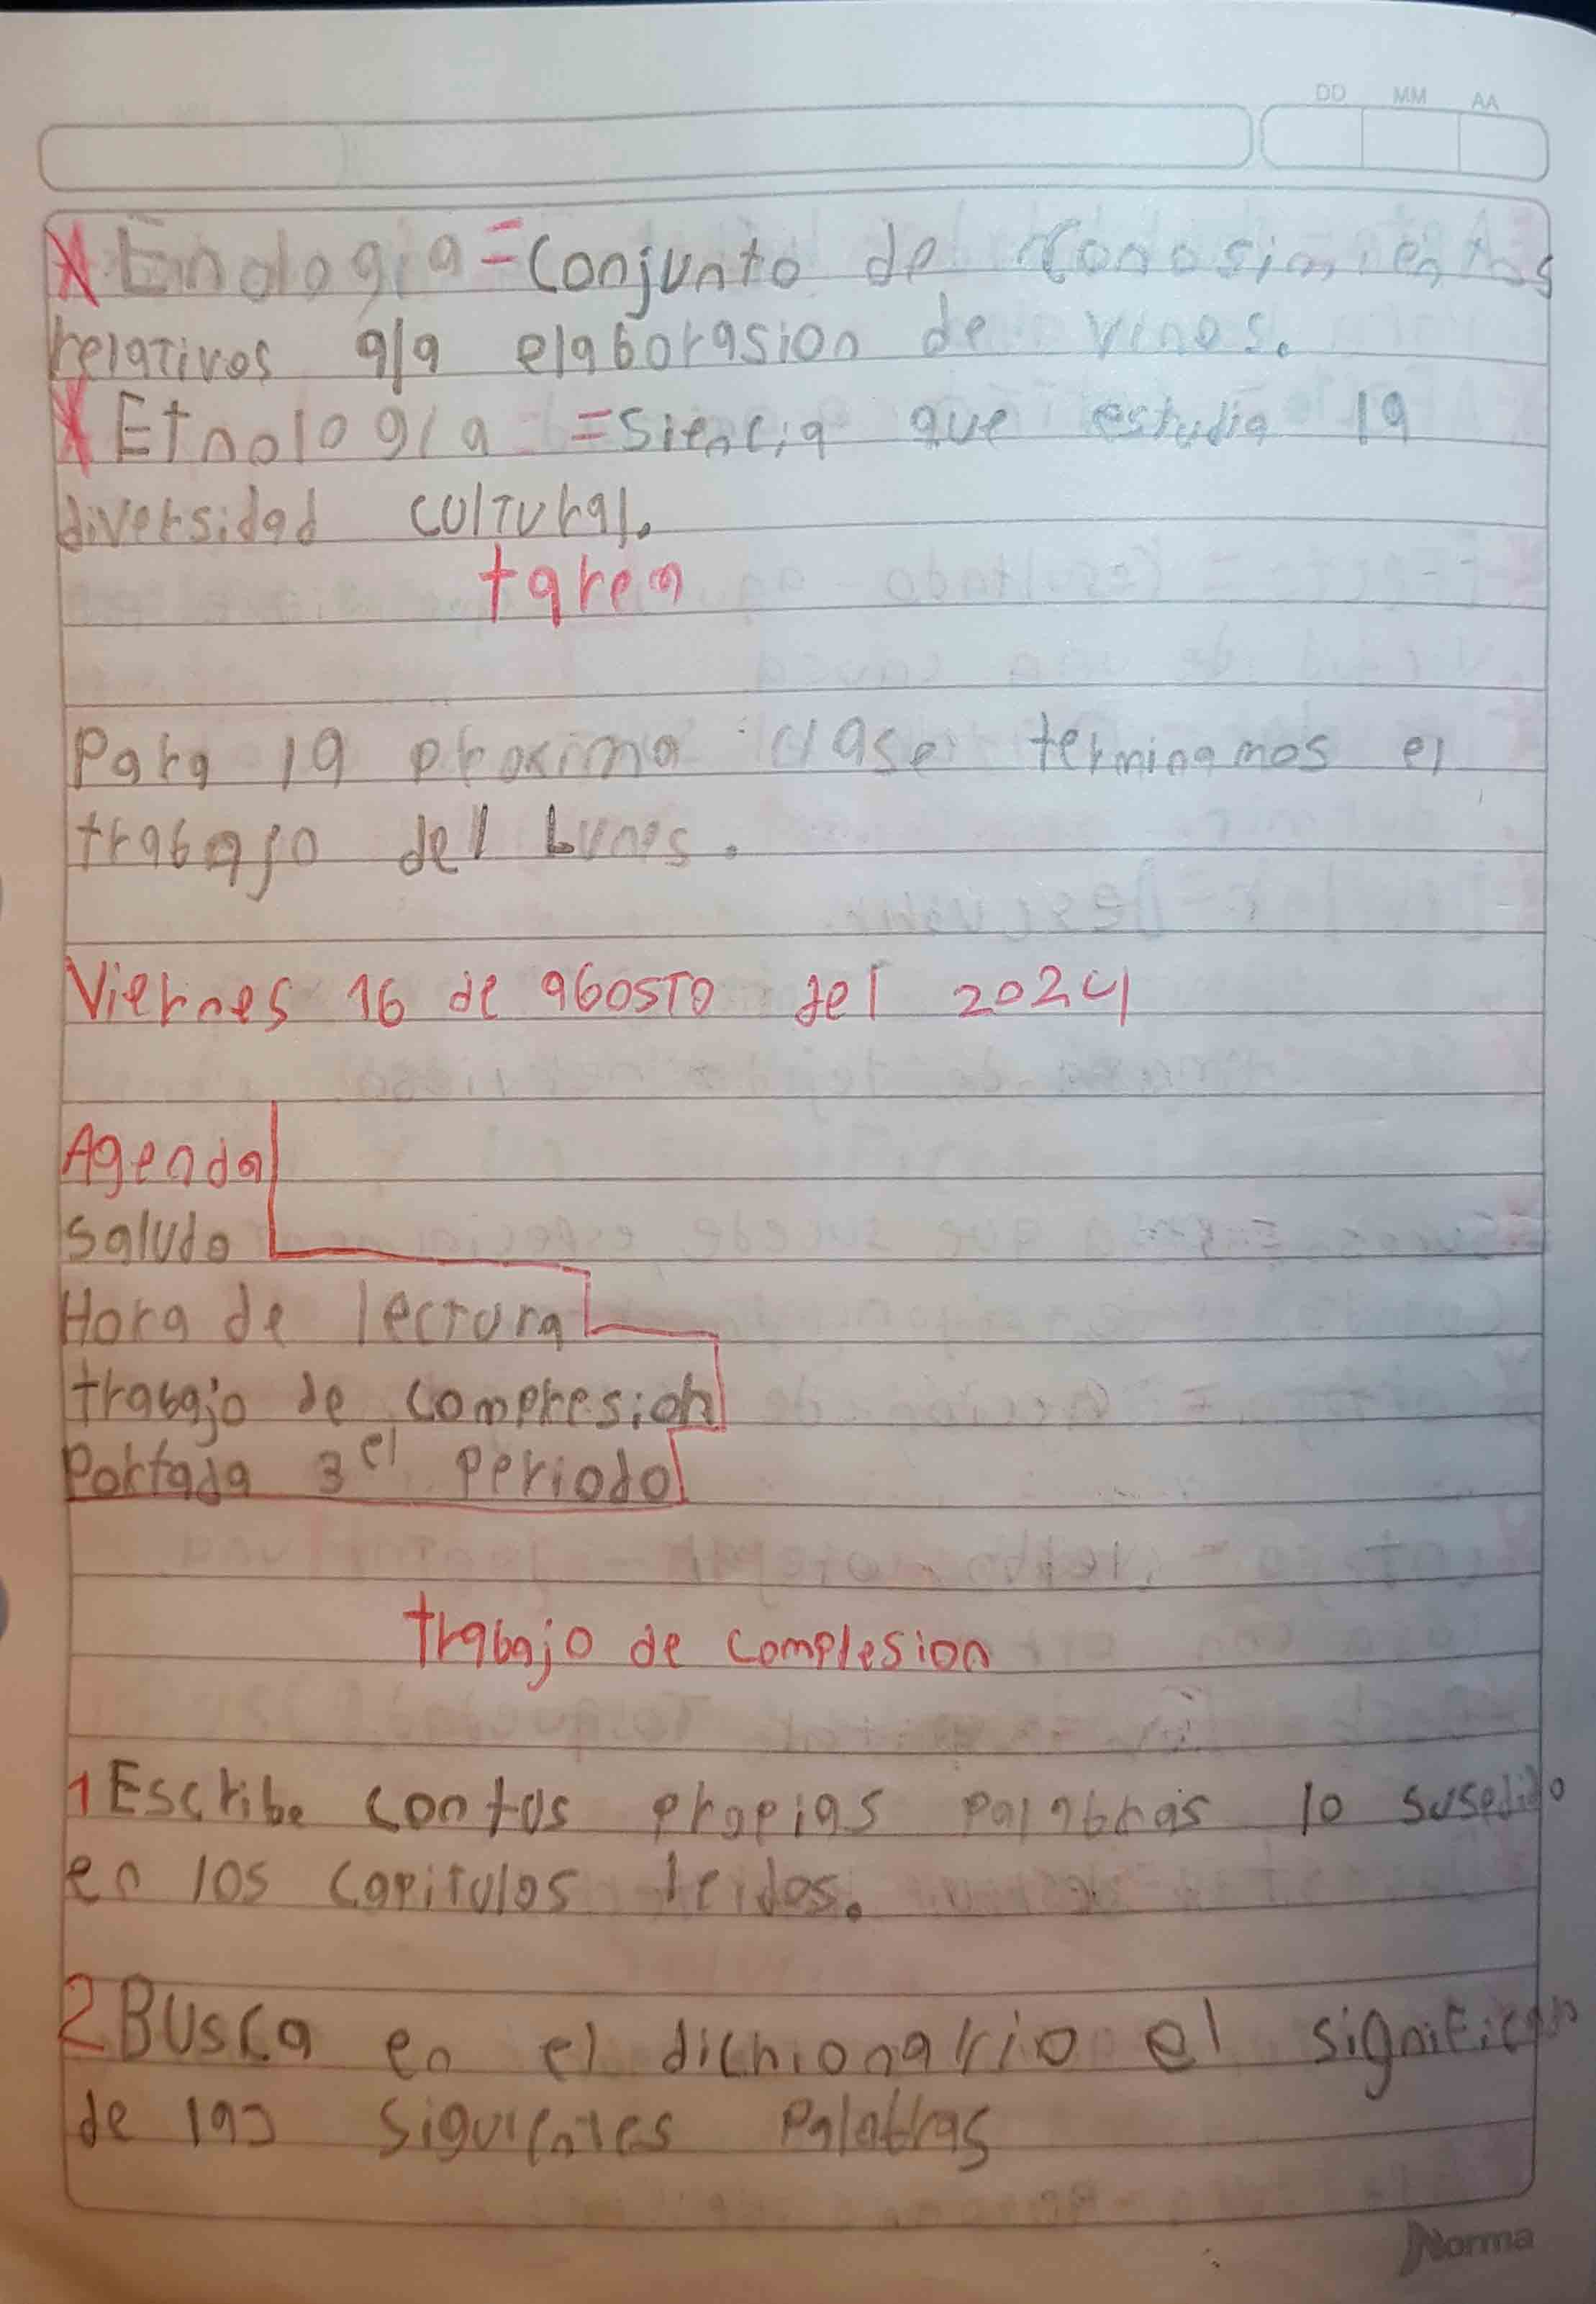 DD MM AA
* Enologia = Conjunto de conosimientos
relativos a la elaborasion de vinos.
* Etnologia = Siencia que estudia la
diversidad cultural.
tarea
Para la proxima clase terminamos el
trabajo del Lunes.
Viernes 16 de agosto del 2024
Agenda
Saludo
Hora de lectura
trabajo de compresion
Portada 3 el periodo
trabajo de complesion
1 Escribe con tus propias palabras lo susedido
en los capitulos leidos.
2 Busca en el dichionario el significado
de las siguientes Palabras
Norma